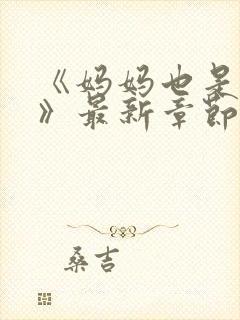 《妈妈也是
》最新章节
桑吉